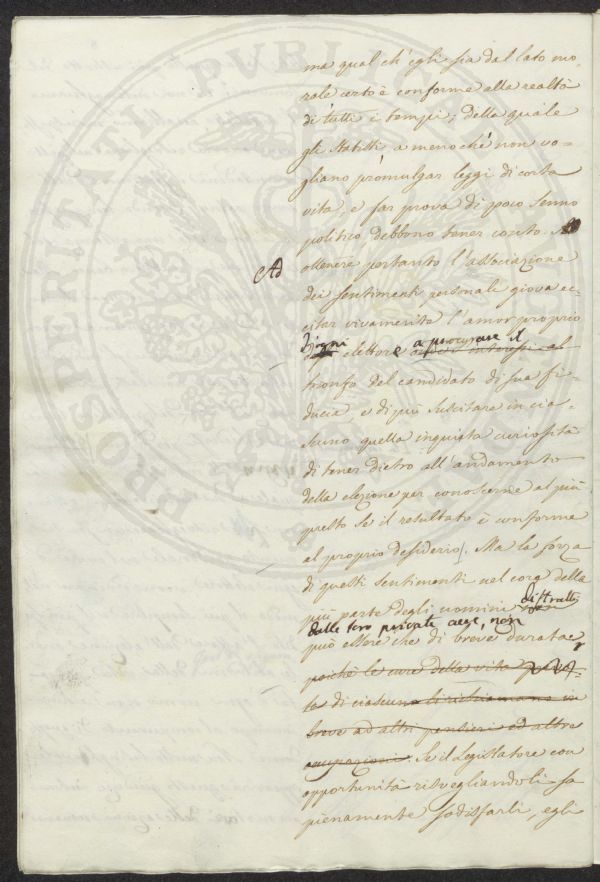 ma qual ch'egli sia dal lato mo-
rale certo è conforme alla realtà
di tutti i tempi, della quale
gli Statisti a menoché non vo-
gliano promulgar leggi di corta
vita, e far prova di poco senno
politico, debbono tener conto.
Ad
ottenere pertanto l'associazione
dei sentimenti personali giova ec-
citar vivamente l'amor proprio
d'ogni elettore a procurare il
interessi al
trionfo del candidato di sua fi-
ducia e di più suscitare in cia-
scuno quella inquieta curiosità
di tener dietro all'andamento
della elezione per conoscerne al più
presto se il resultato è conforme
al proprio desiderio. Ma la forza
di questi sentimenti nel core della
più parte degli uomini distratti
dalle loro private cure, non
può essere che di breve durata
poichè le cure della vita
di ciascuno li richiamano in
breve ad altri pensieri ed altre
occupazioni. Se il Legislatore con
opportunità risvegliandoli sa
pienamente sodisfarli, egli
PROSPERITATI PVBLICAE